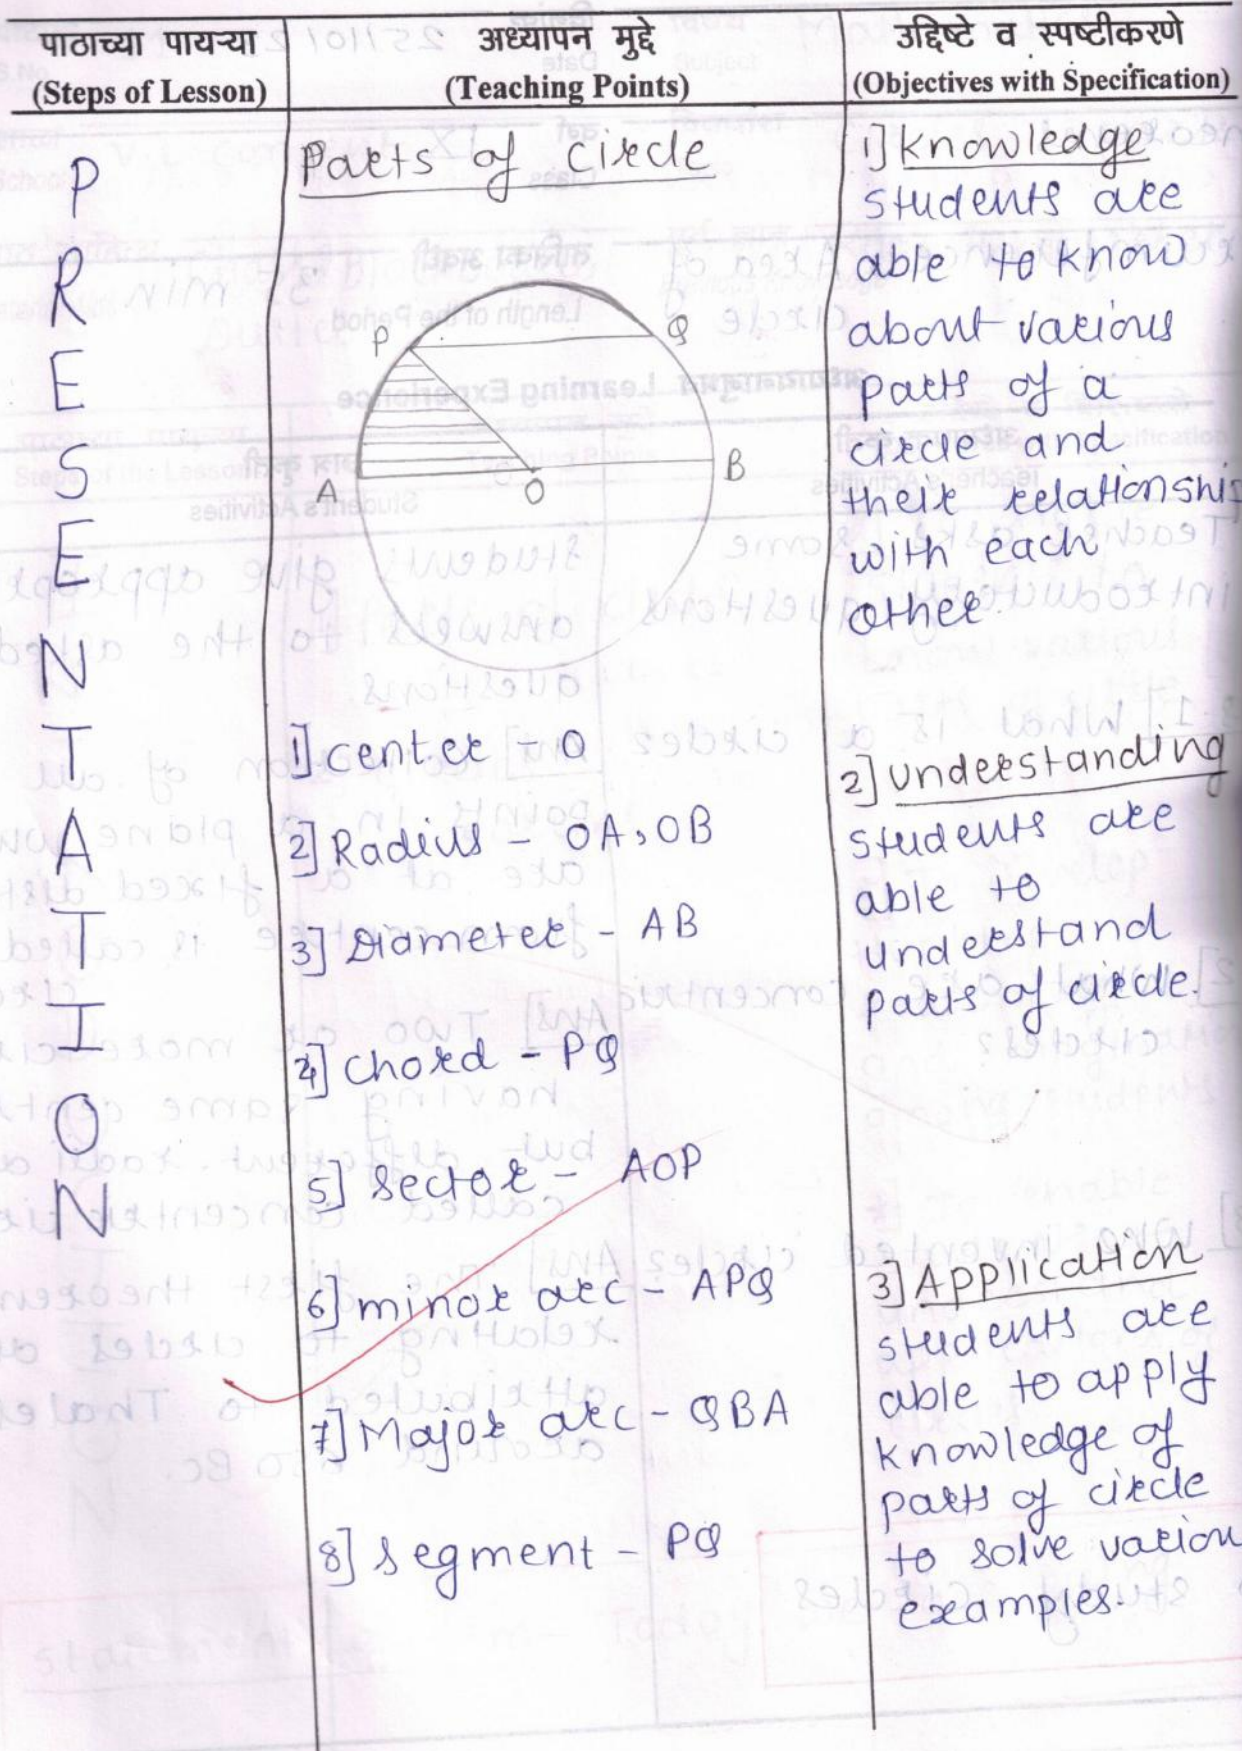 पाठाच्या पायऱ्या
(Steps of Lesson)
अध्यापन मुद्दे
(Teaching Points)
उद्दिष्टे व स्पष्टीकरणे
(Objectives with Specification)
P
R
E
S
E
N
T
A
T
I
O
N
Parts of circle
P
Q
A
O
B
1] center - O
2] Radius - OA, OB
3] Diameter - AB
4] chord - PQ
5] Sector - AOP
6] minor arc - APQ
7] Major arc - QBA
8] segment - PQ
1] Knowledge
students are
able to know
about various
parts of a
circle and
their relationshi
with each
other.
2] understanding
students are
able to
understand
parts of circle.
3] Application
students are
able to apply
knowledge of
parts of circle
to solve variou
examples.